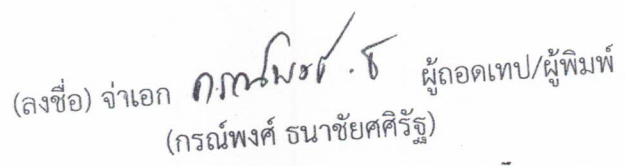 (ลงชื่อ) จ่าเอก กรณ์พงศ์ . ธ ผู้ถอดเทป/ผู้พิมพ์
(กรณ์พงศ์ ธนาชัยศศิรัฐ)